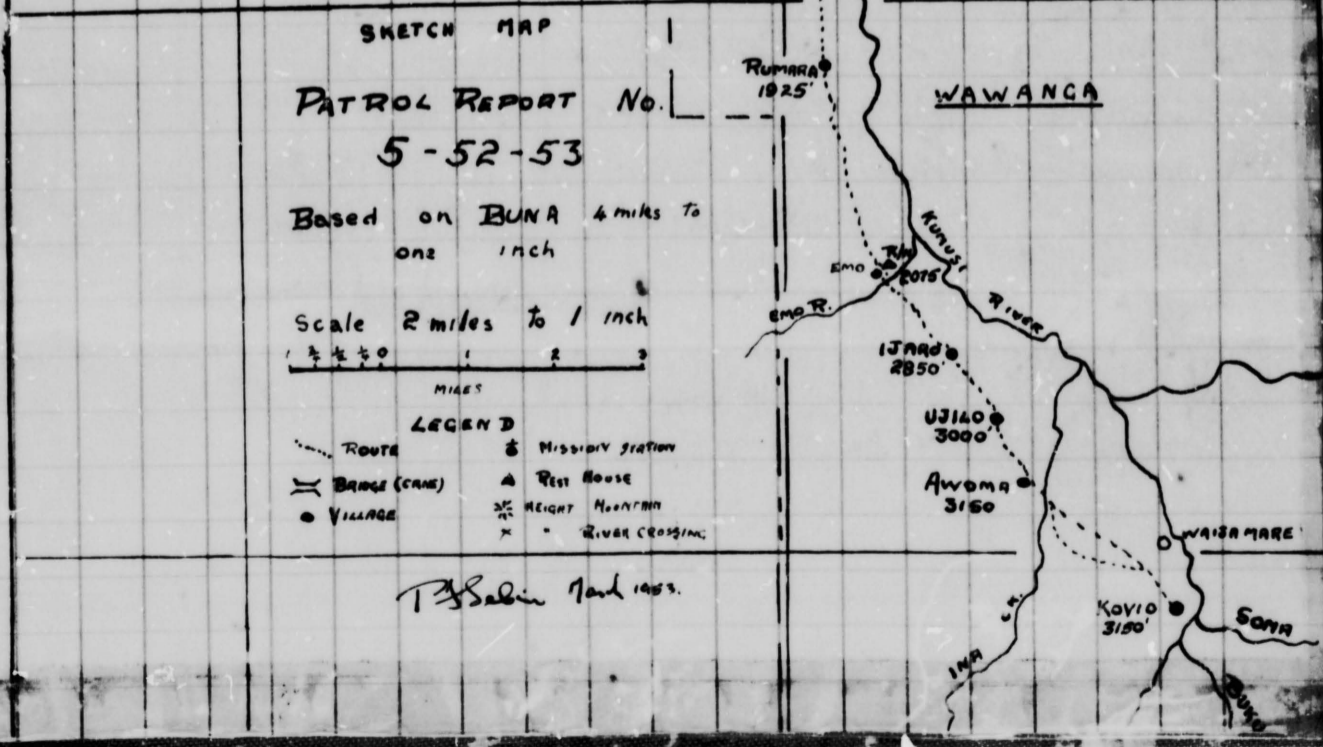 SKETCH MAP
PATROL REPORT No.
5-52-53
Based on BUNA 4 miles to
one inch
Scale 2 miles to 1 inch
¾ ½ ¼ 0 1 2 3
MILES
LEGEND
ROUTE
BRIDGE (CANE)
VILLAGE
MISSION STATION
REST HOUSE
HEIGHT MOUNTAIN
" RIVER CROSSING
March 1953.
RUMARA
1925'
WAWANGA
KUMUSI
RIVER
R/H
EMO
2075'
EMO R.
IJARO
2850'
UJILO
3000'
AWOMA
3150
WAISAMARE
KOVIO
3150'
SOMA
INA
CK.